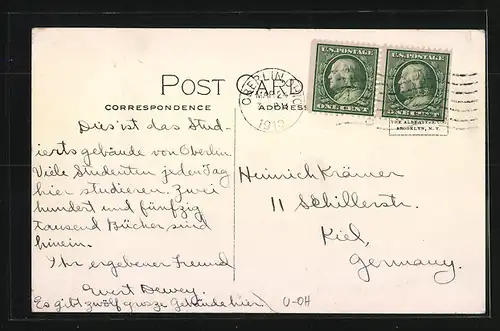 POST CARD
CORRESPONDENCE
ADDRESS
OBERLIN
MAR 24
1913
U.S. POSTAGE
ONE CENT
U.S. POSTAGE
ONE CENT
THE ALBERTYPE
BROOKLYN, N.Y.
Dies ist das Stud-
ierts gebände von Oberlin
Viele Studenten jeden Tag
hier studieren. Zwei
hundert und fünfzig
tausend Bücher sind
hinein.
Ihr ergebener Freund
Evert Dewey.
Es gibt zwölf grosze Gebäude hier.
Heinrich Krämer
11 Schillerstr.
Kiel,
Germany.
U-OH